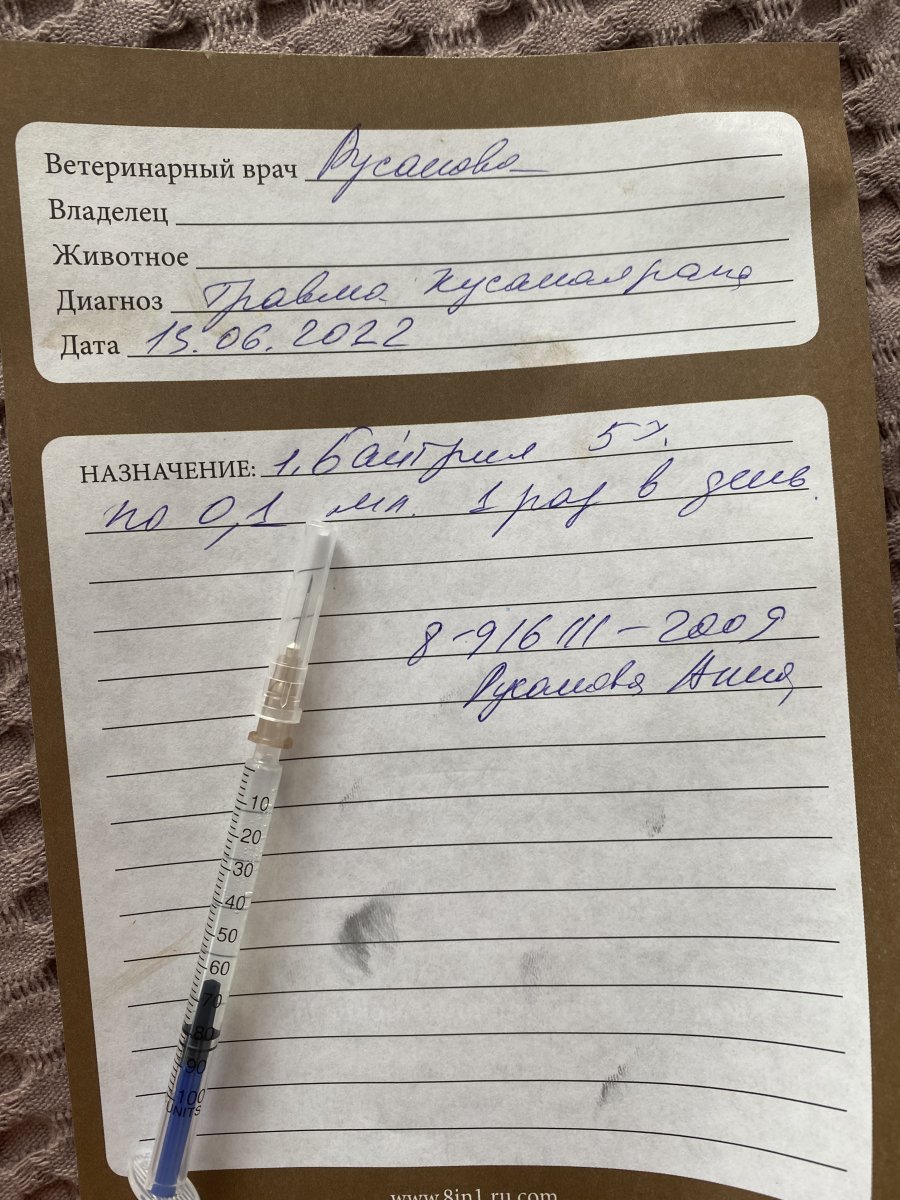 Ветеринарный врач Русанова
Владелец
Животное
Диагноз Травма кусаная рана
Дата 15.06.2022
НАЗНАЧЕНИЕ: 1. Байтрил 5%.
по 0,1 мл. 1 раз в день.
8-916 111-2009
Русанова Анна
10
20
30
40
50
60
70
80
90
100
UNITS
www.8in1.ru.com